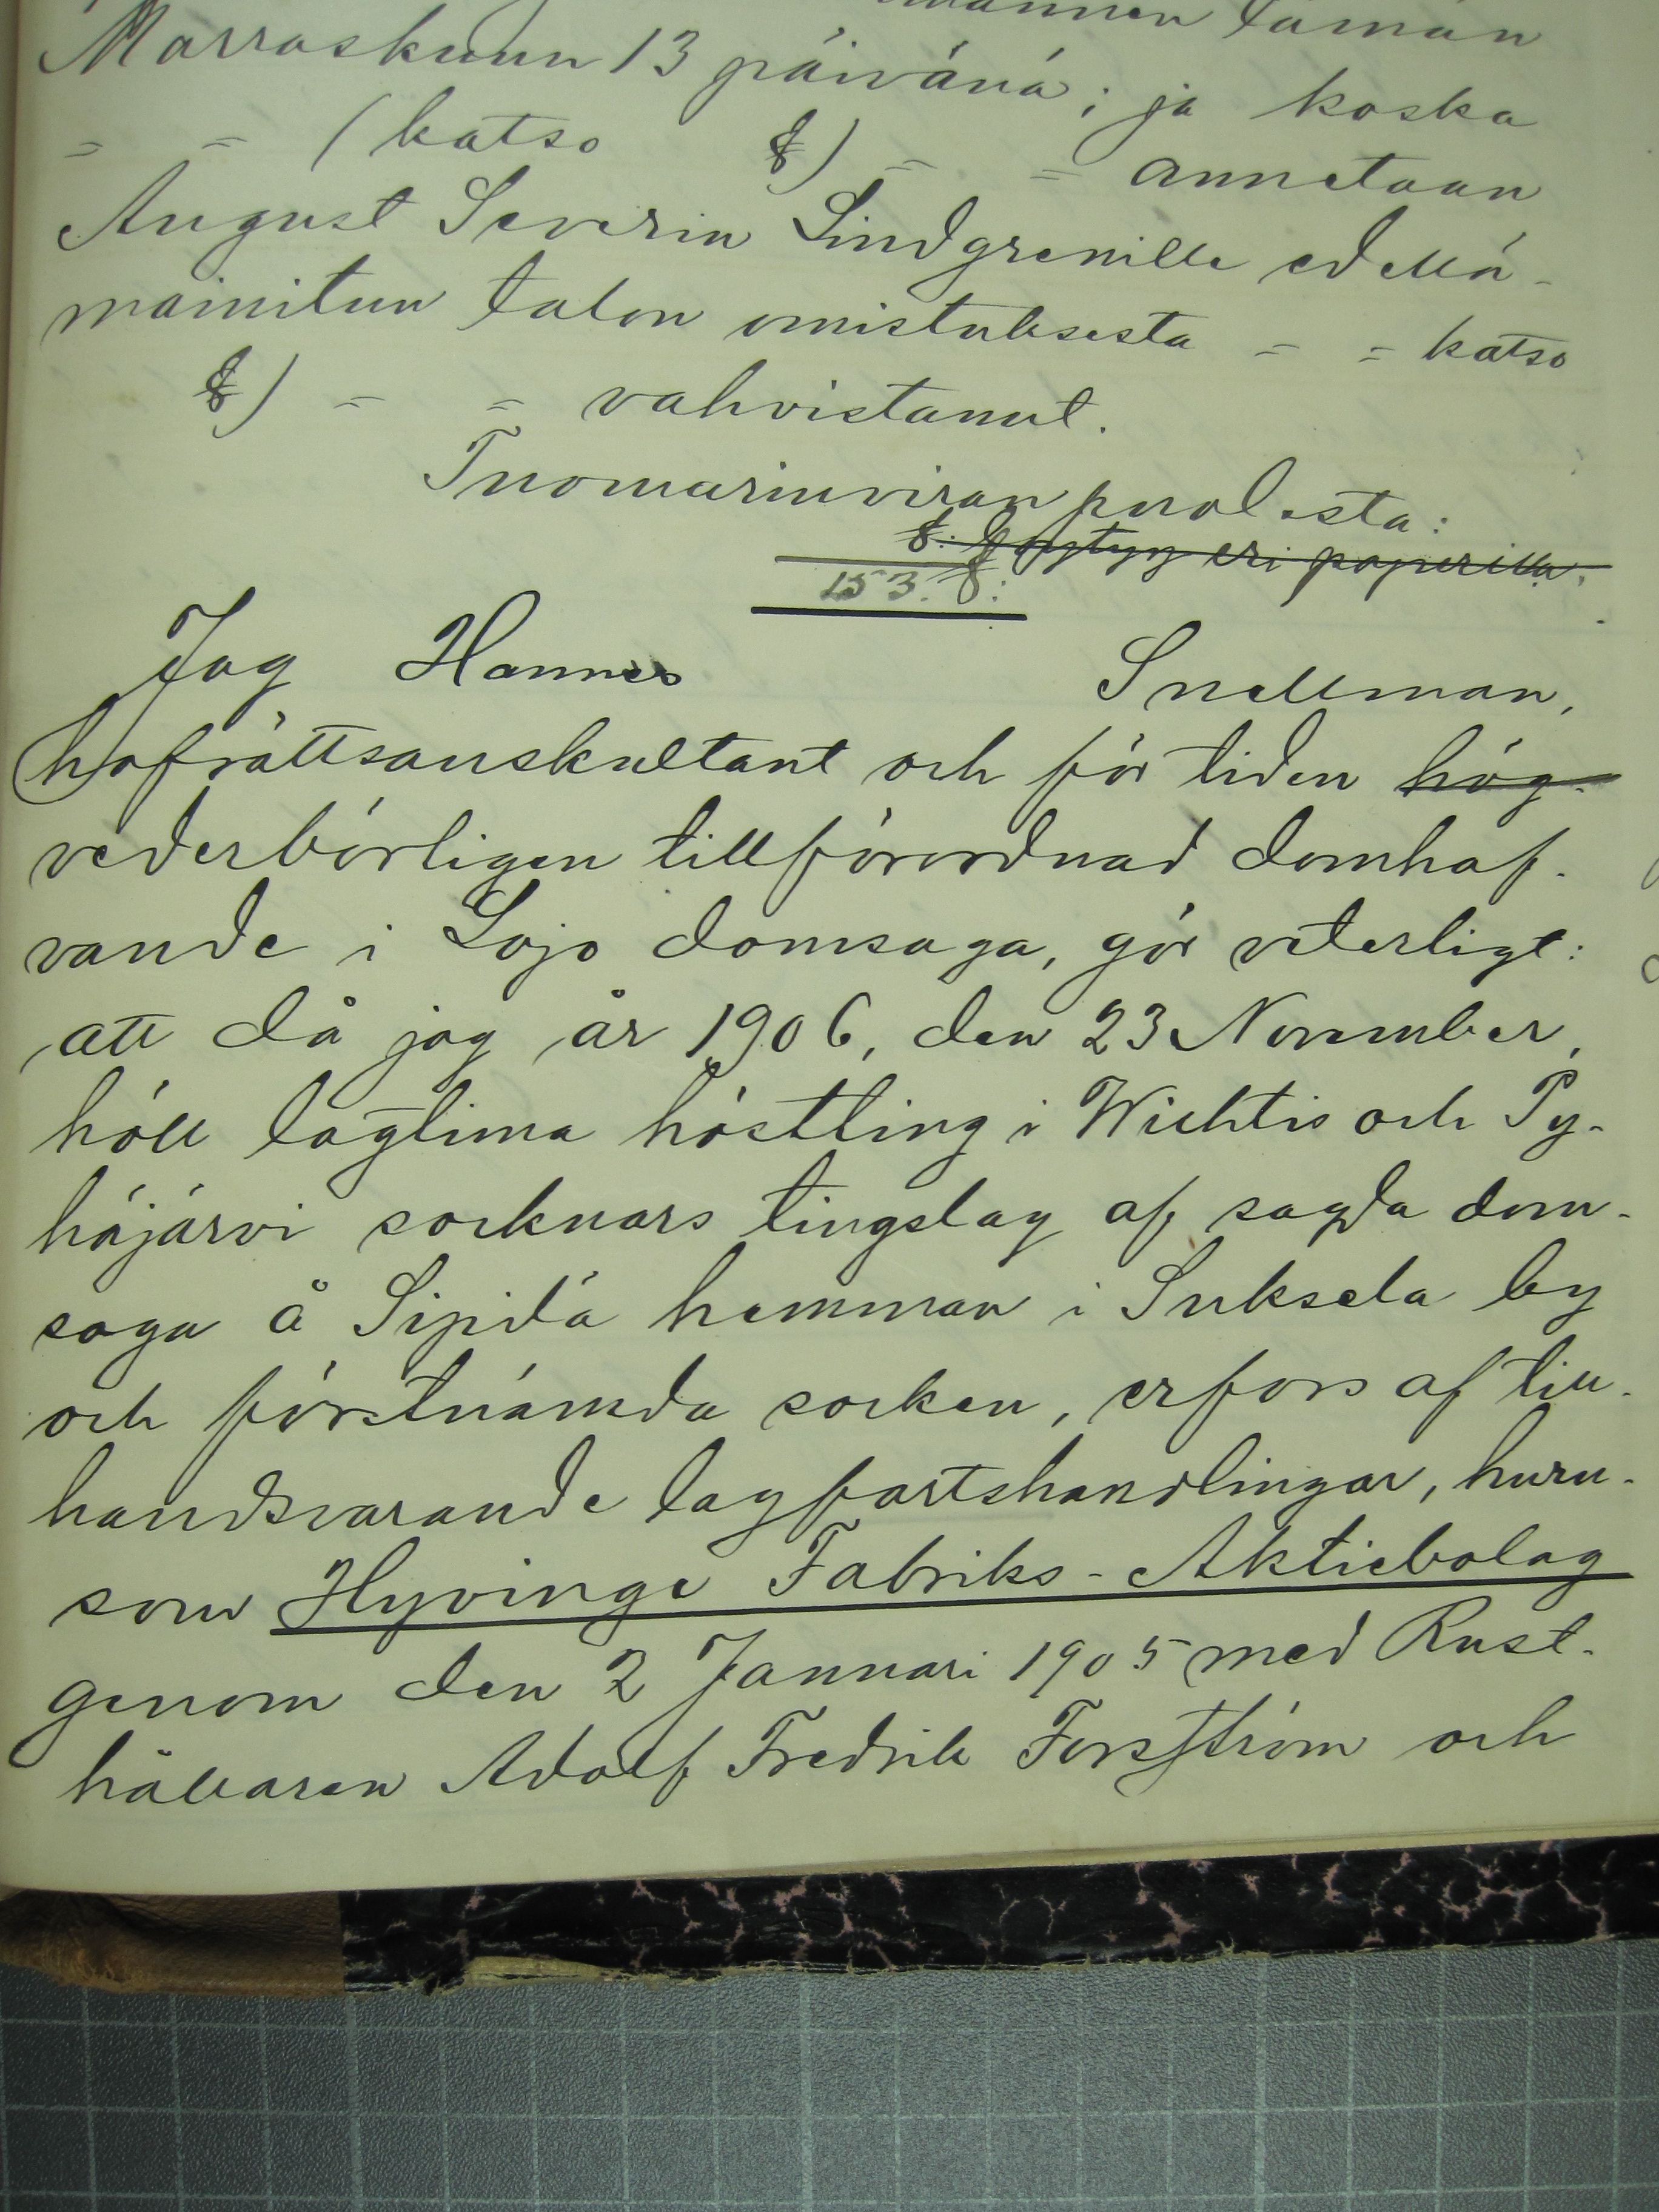 tämän
Marraskuun 13 päivänä; ja koska
= = (katso §) = = annetaan
August Severin Lindgrenille edellä-
mainitun talon omistuksesta = = katso
§) = = vahvistanut.
Tuomarinviran puolesta:
§. löytyy eri paperilla.
153. §:
Jag Hannes Snellman,
hofrättsauskultant och för tiden hög-
vederbörligen tillförordnad domhaf-
vande i Lojo domsaga, gör veterligt:
att då jag år 1906, den 23 November,
höll lagtima höstting i Wichtis och Py-
häjärvi socknars tingslag af sagda dom-
saga å Sipilä hemman i Suksela by
och förstnämda socken, erfors af till-
handsvarande lagfartshandlingar, huru-
som Hyvinge Fabriks-Aktiebolag
genom den 2 Januari 1905 med Rust-
hållaren Adolf Fredrik Forsström och